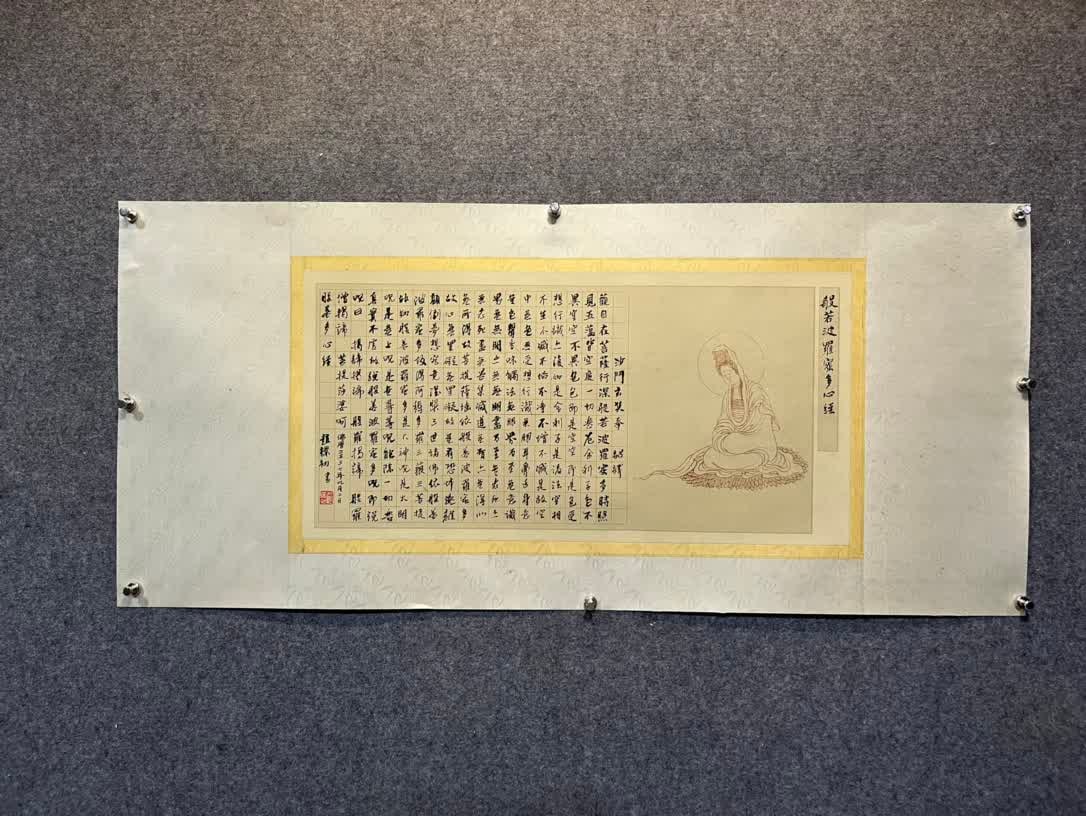 般若波羅蜜多心經
沙門玄奘奉 詔譯
觀自在菩薩行深般若波羅蜜多時照
見五蘊皆空度一切苦厄舍利子色不
異空空不異色色即是空空即是色受
想行識亦復如是舍利子是諸法空相
不生不滅不垢不淨不增不減是故空
中無色無受想行識無眼耳鼻舌身意
無色聲香味觸法無眼界乃至無意識
界無無明亦無無明盡乃至無老死亦
無老死盡無苦集滅道無智亦無得以
無所得故菩提薩埵依般若波羅蜜多
故心無罣礙無罣礙故無有恐怖遠離
顛倒夢想究竟涅槃三世諸佛依般若
波羅蜜多故得阿耨多羅三藐三菩提
故知般若波羅蜜多是大神呪是大明
呪是無上呪是無等等呪能除一切苦
真實不虛故説般若波羅蜜多呪即説
呪曰 揭諦揭諦 般羅揭諦 般羅
僧揭諦 菩提莎婆呵
般若多心經
佛曆二五二年九月日
趙樸初書